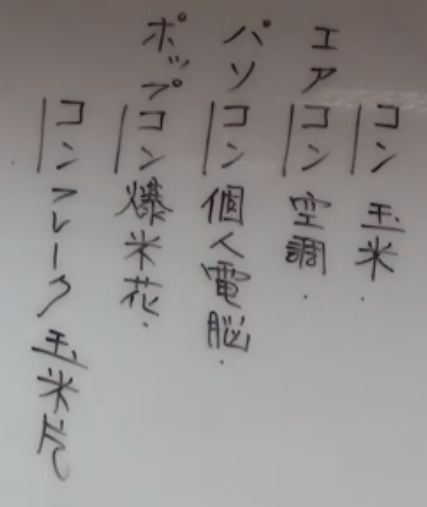 コン 玉米.
エアコン 空調.
パソコン 個人電脳.
ポップコン 爆米花.
コンフレーク 玉米片